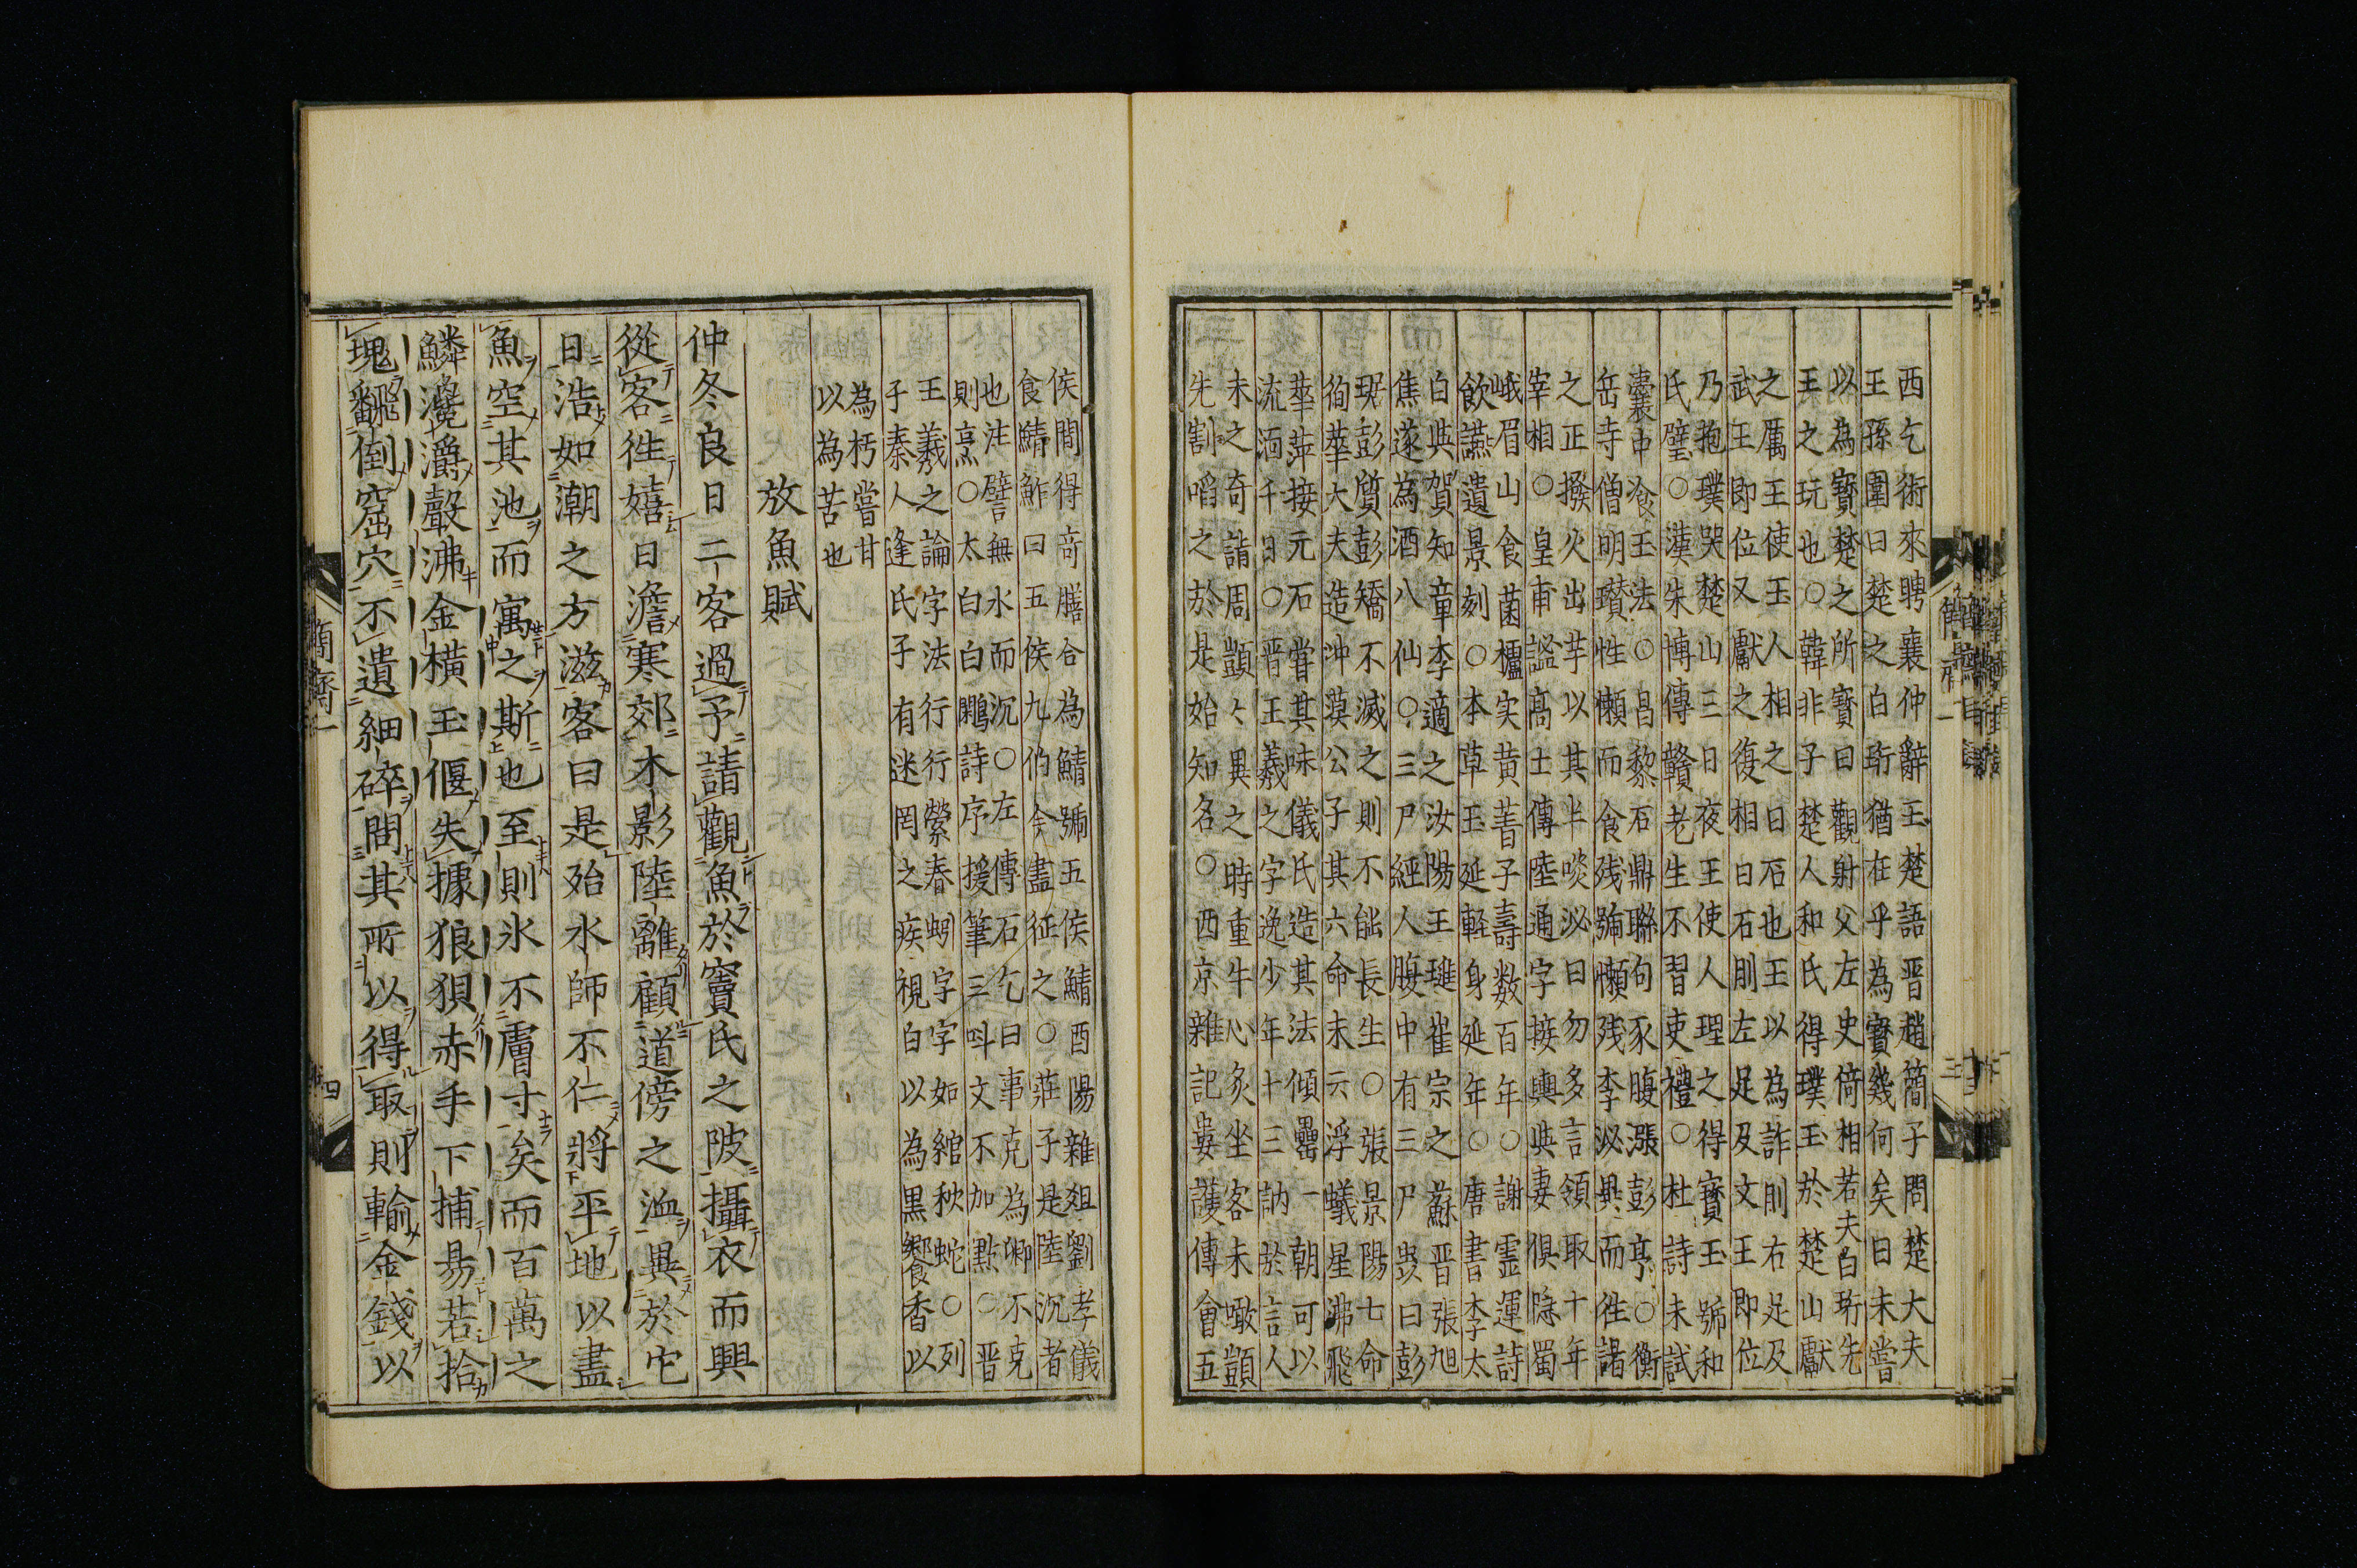 西乞術來聘襄仲辭玉楚語晋趙簡子問楚大夫
王孫圍曰楚之白珩猶在乎為寳幾何矣曰未嘗
以為寳楚之所寳曰觀射父左史倚相若夫白珩先
王之玩也○韓非子楚人和氏得璞玉於楚山獻
之厲王使玉人相之曰石也王以為詐刖右足及
武王即位又獻之復相曰石刖左足及文王即位
乃抱璞哭楚山三日夜王使人理之得寳玉號和
氏璧○漢朱博傳贛老生不習吏禮○杜詩未試
囊中飡玉法○昌黎石鼎聯句豕腹漲彭亨○衡
岳寺僧明瓚性懶而食残號懶残李泌異而徃諸
之正撥火出芋以其半啖泌曰勿多言領取十年
宰相○皇甫謐髙士傳陸通字接輿與妻俱隠蜀
峨眉山食菌櫨实黄菁子壽数百年○謝霊運詩
飲讌遺景刻○本草玉延軽身延年○唐書李太
白與賀知章李適之汝陽王璡崔宗之蘇晋張旭
焦遂為酒八仙○三尸經人腹中有三尸賷曰彭
琚彭質彭矯不滅之則不能長生○張景陽七命
徇華大夫造沖漠公子其六命未云浮蟻星沸飛
華萍接元石嘗其味儀氏造其法傾罍一朝可以
流湎千日○晋王羲之字逸少年十三訥於言人
未之奇詣周顗々異之時重牛心炙坐客未噉顗
先割啗之於是始知名○西京雜記婁護傳會五
侯間得奇膳合為鯖號五侯鯖酉陽雜俎劉孝儀
食鯖鮓曰五侯九伯今盡征之○莊子是陸沉者
也注譬無水而沉○左傳石乞曰事克為卿不克
則烹○太白白鷴詩序援筆三呌文不加點○晋
王羲之論字法行行縈春蚓字字如綰秋蛇○列
子秦人逢氏子有迷罔之疾視白以為黒饗香以
為朽嘗甘
以為苦也
放魚賦
仲冬良日二客過予請觀魚於竇氏之陂攝衣而興
從客徃嬉日澹寒郊木影陸離顧道傍之洫異於它
日浩如潮之方滋客曰是殆水師不仁將平地以盡
魚空其池而寓之斯也至則氷不膚寸矣而百萬之
鱗瀺灂聲沸金横玉偃失據狼狽赤手下捕易若拾
塊翻倒窟穴不遺細碎問其所以得取則輸金錢以
簡齋一
四